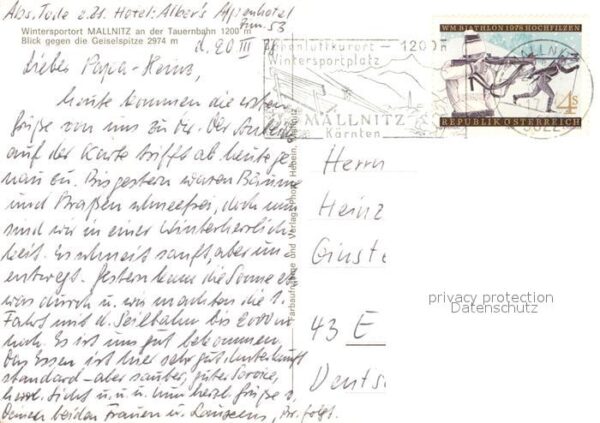 Abs. Tode z.Zt. Hotel: Alber's Alpenhotel
Zim. 53
Wintersportort MALLNITZ an der Tauernbahn 1200 m
Blick gegen die Geiselspitze 2974 m
d. 20 III
Lieber Papa-Heinz,
heute kommen die ersten
Grüße von uns zu Dir. Der Anblick
auf der Karte trifft ab heute ge
nau zu. Bis gestern waren Bäume
und Straßen schneefrei, doch nun
sind wir in einer Winterherrlich
keit. Es schneit sanft, aber un
entwegt. Gestern kam die Sonne et
was durch u. wir machten die 1.
Fahrt mit d. Seilbahn bis 2000 m
hoch. Es ist uns gut bekommen.
Das Essen ist hier sehr gut, Unterkunft
standard - aber sauber, guter Service,
herrl. Sicht u.u.u. Nun herzl. Grüße
Deinen beiden Frauen u. Br. folgt.
Farbaufnahme und Verlag: Photo
henluftkurort — 1200 m
Wintersportplatz
MALLNITZ
Kärnten
WM BIATHLON 1978 HOCHFILZEN
4 S
REPUBLIK ÖSTERREICH
MALLNITZ
9822
Herrn
Heinz
Ginste
43 E
Deuts
privacy protection
Datenschutz